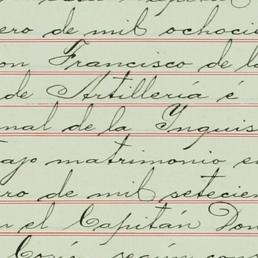 ero de mil ochocie
on Francisco de la
de Artillería é
nal de la Ynquis
ajo matrimonio e
ro de mil setecien
n el Capitán Don